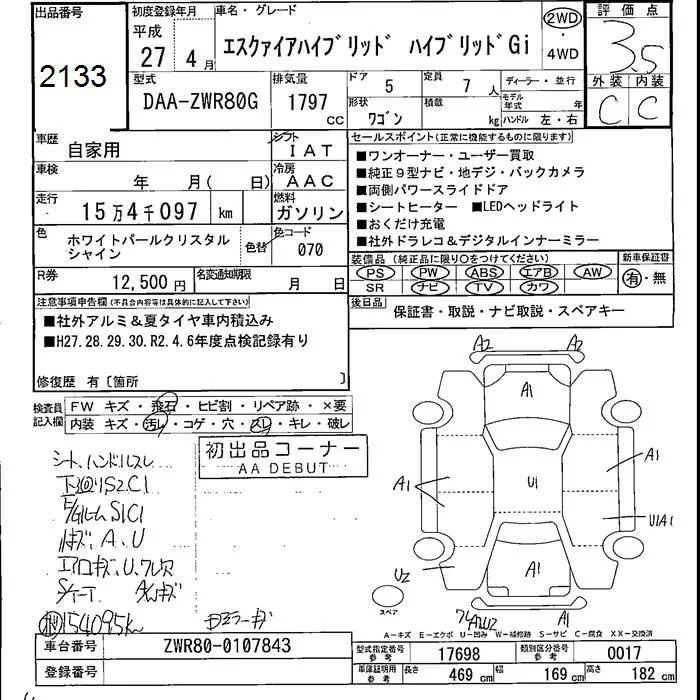 出品番号
2133
初度登録年月
平成
27年 4月
車名・グレード
エスクァイアハイブリッド ハイブリッドGi
2WD
・
4WD
評価点
3.5
外装 内装
C C
型式
DAA-ZWR80G
排気量
1797
cc
ドア
5
定員
7 人
形状
ワゴン
積載
kg
ディーラー・並行
モデル年式 年
ハンドル 左・右
車歴
自家用
シフト
IAT
車検
年 月( 日)
冷房
AAC
走行
15万4千097 km
燃料
ガソリン
色
ホワイトパールクリスタル
シャイン
色替
色コード
070
R券
12,500 円
名変通知期限
月 日
セールスポイント(正常に機能するものに限ります)
■ワンオーナー・ユーザー買取
■純正9型ナビ・地デジ・バックカメラ
■両側パワースライドドア
■シートヒーター ■LEDヘッドライト
■おくだけ充電
■社外ドラレコ&デジタルインナーミラー
装備品(純正品に限り○をつけてください)
PS PW ABS エアB AW
SR ナビ TV カワ
新車保証書
有・無
後日品
保証書・取説・ナビ取説・スペアキー
注意事項申告欄(不具合内容等は具体的に記入して下さい)
■社外アルミ&夏タイヤ車内積込み
■H27.28.29.30.R2.4.6年度点検記録有り
修復歴 有〔箇所 〕
検査員
記入欄
FW キズ・飛石・ヒビ割・リペア跡・×要
内装 キズ・汚レ・コゲ・穴・スレ・キレ・破レ
初出品コーナー
AA DEBUT
シート、ハンドルスレ
S2C1
S1C1
A、U
154095km
A2 A2
A1
A1
A1
U1
U1A1
U2
A1
A1
スペア
A-キズ E-エクボ U-凹み W-補修跡 S-サビ C-腐食 XX-交換済
車台番号
ZWR80-0107843
登録番号
型式指定番号
参考
17698
類別区分番号
参考
0017
車庫証明用
参考
長さ 469 cm 幅 169 cm 高さ 182 cm